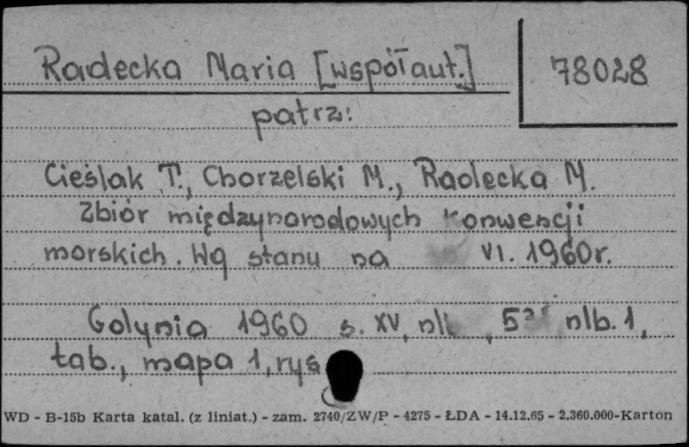 Radecka Maria [współaut.]
78028
patrz:
Cieślak T., Chorzelski M., Radecka M.
Zbiór międzynarodowych konwencji
morskich. Wg stanu na VI. 1960r.
Gdynia 1960 s. XV, nlb. 1,
tab., mapa 1, rys
WD - B-15b Karta katal. (z liniat.) - zam. 2740/ZW/P - 4275 - ŁDA - 14.12.65 - 2.360.000-Karton